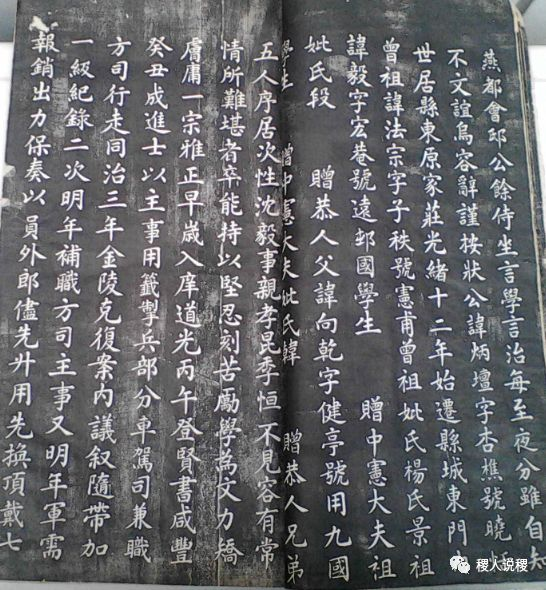 燕都會邸公餘侍坐言學言治每至夜分雖自知
不文誼烏容辭謹按狀公諱炳壇字杏樵號曉
世居縣東原家莊光緒十二年始遷縣城東門
曾祖諱法宗字子秩號憲甫曾祖妣氏楊氏景祖
諱毅字宏菴號遠邨國學生 贈中憲大夫祖
妣氏段 贈恭人父諱向乾字健亭號用九國
學生 贈中憲大夫妣氏韓 贈恭人兄弟
五人序居次性沈毅事親孝昆季恒不見容有常
情所難堪者卒能持以堅忍刻苦勵學為文力矯
膚庸一宗雅正早歲入庠道光丙午登賢書咸豐
癸丑成進士以主事用籤掣兵部分車駕司兼職
方司行走同治三年金陵克復案內議叙隨帶加
一級紀錄二次明年補職方司主事又明年軍需
報銷出力保奏以員外郎儘先升用先換頂戴七
稷人说稷